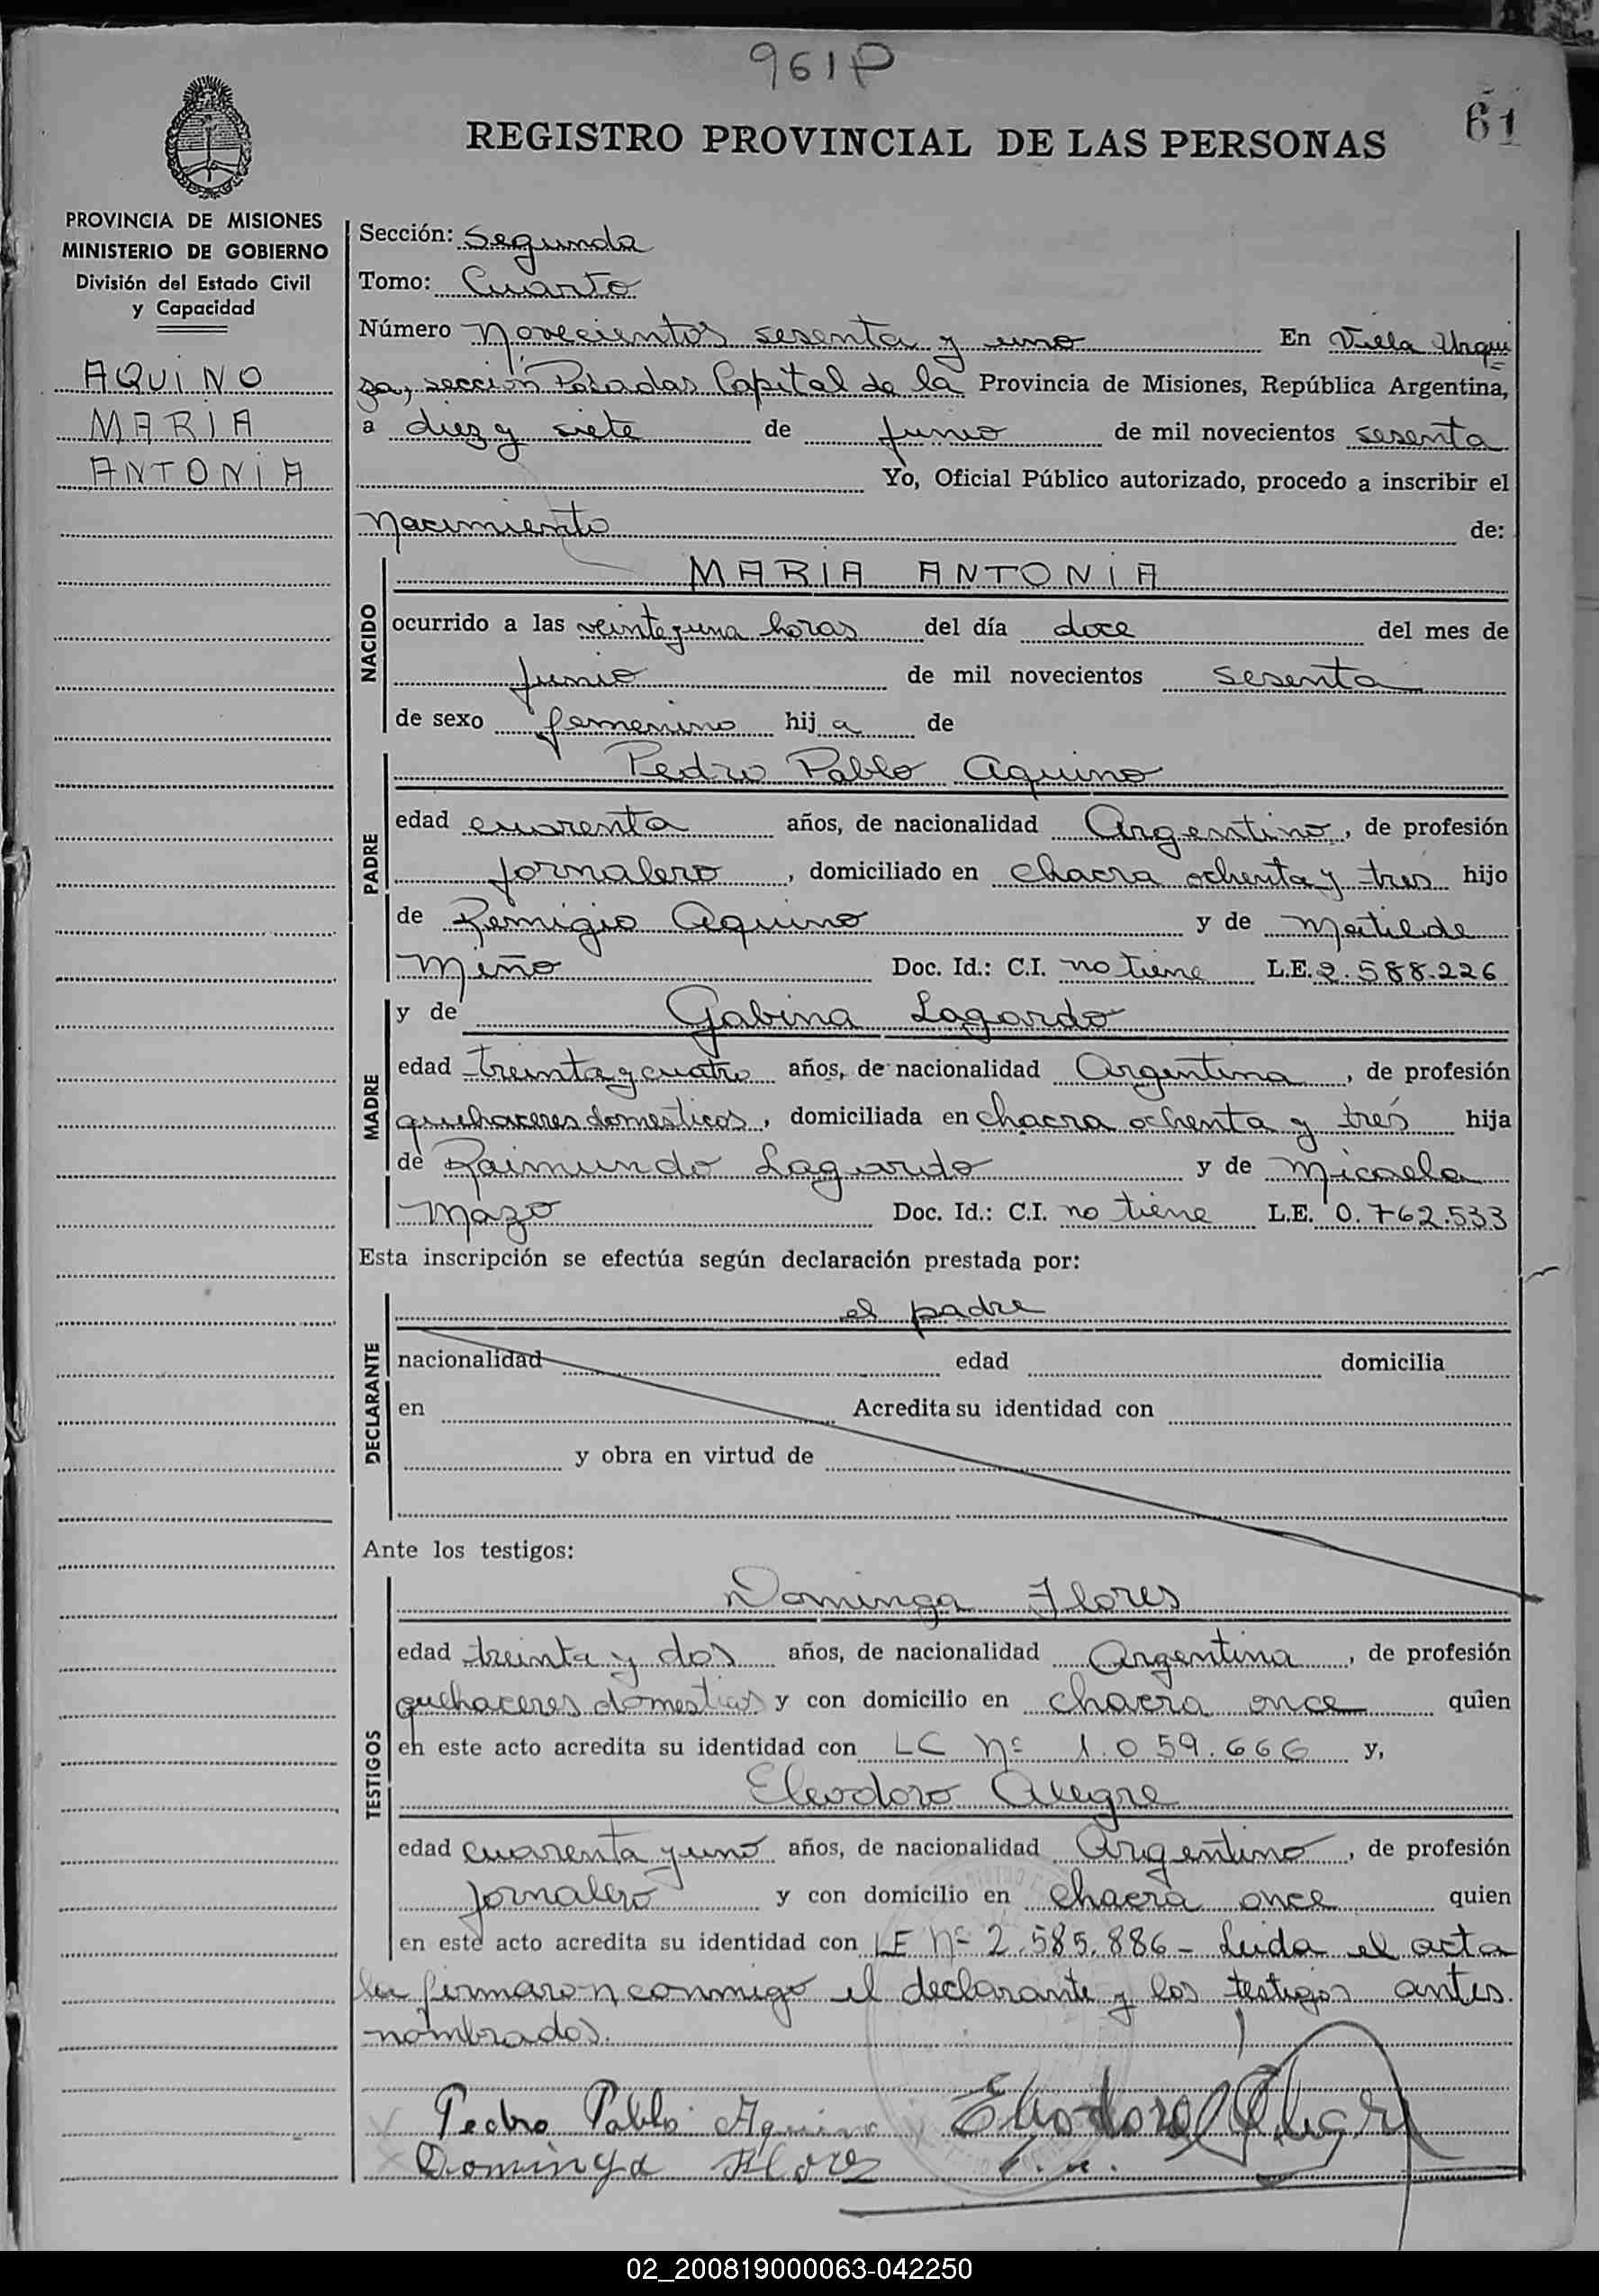 961P
61
REGISTRO PROVINCIAL DE LAS PERSONAS
PROVINCIA DE MISIONES
MINISTERIO DE GOBIERNO
División del Estado Civil
y Capacidad
AQUINO
MARIA
ANTONIA
Sección: Segunda
Tomo: Cuarto
Número Novecientos sesenta y uno En Villa Urqui
za, sección Posadas Capital de la Provincia de Misiones, República Argentina,
a diez y siete de junio de mil novecientos sesenta
Yo, Oficial Público autorizado, procedo a inscribir el
Nacimiento de:
NACIDO
MARIA ANTONIA
ocurrido a las veinteyuna horas del día doce del mes de
junio de mil novecientos sesenta
de sexo femenino hija de
PADRE
Pedro Pablo Aquino
edad cuarenta años, de nacionalidad Argentino, de profesión
jornalero, domiciliado en chacra ochenta y tres hijo
de Remigio Aquino y de Matilde
Miño Doc. Id.: C.I. no tiene L.E. 2.588.226
MADRE
y de Gabina Lagardo
edad treinta y cuatro años, de nacionalidad Argentina, de profesión
quehaceres domesticos, domiciliada en chacra ochenta y tres hija
de Raimundo Lagardo y de Micaela
Mazo Doc. Id.: C.I. no tiene L.E. 0.762.533
Esta inscripción se efectúa según declaración prestada por:
DECLARANTE
el padre
nacionalidad edad domicilia
en Acredita su identidad con
y obra en virtud de
Ante los testigos:
TESTIGOS
Dominga Flores
edad treinta y dos años, de nacionalidad Argentina, de profesión
quehaceres domesticos y con domicilio en chacra once quien
en este acto acredita su identidad con LC Nº 1.059.666 y,
Eleodoro Alegre
edad cuarenta y uno años, de nacionalidad Argentino, de profesión
jornalero y con domicilio en chacra once quien
en este acto acredita su identidad con LE Nº 2.585.886 - Leida el acta
la firmaron conmigo el declarante y los testigos antes
nombrados.
Pedro Pablo Aquino Eliodoro Alegre
Dominga Flores
02_200819000063-042250